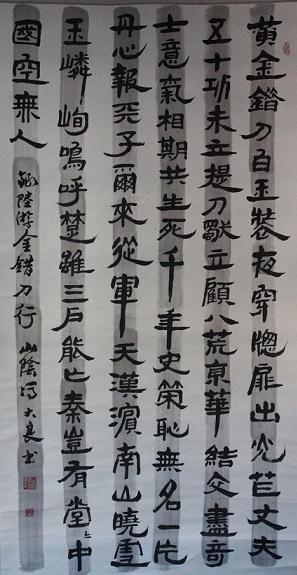 黄金錯刀白玉裝夜穿牕扉出光芒丈夫
五十功未立提刀獨立顧八荒京華結交盡奇
士意氣相期共生死千年史策恥無名一片
丹心報天子爾來從軍天漢濱南山曉雪
玉嶙峋嗚呼楚雖三戶能亡秦豈有堂〻中
國空無人 錄陸游金錯刀行 山陰馮大良書